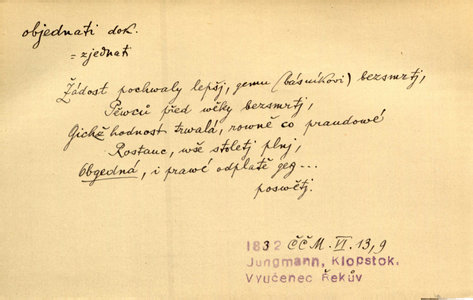 objednati dok.
= zjednati
Žádost pochwaly lepšj, gemu (básníkovi) bezsmrtj,
Pěwců před wěky bezsmrtj,
Gichž hodnost trwalá, rowně co praudowé
Rostauc, wše stoletj plnj,
Obgedná, i prawé odplatě geg...
poswětj.
1832 ČČM. VI. 13,9
Jungmann, Klopstok,
Vyučenec Řekův